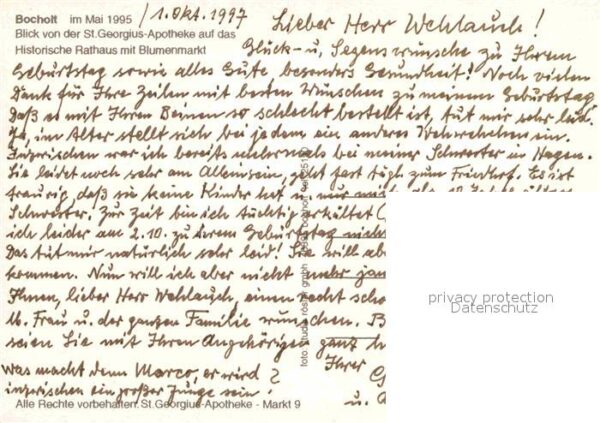 Bocholt im Mai 1995 / 1. Okt. 1997
Blick von der St.Georgius-Apotheke auf das
Historische Rathaus mit Blumenmarkt
Lieber Herr Wehlauch!
Glück- u. Segenswünsche zu Ihrem
Geburtstag sowie alles Gute besonders Gesundheit! Noch vielen
Dank für Ihre Zeilen mit besten Wünschen zu meinem Geburtstag
Daß es mit Ihren Beinen so schlecht bestellt ist, tut mir sehr leid.
Ja, im Alter stellt sich bei jedem ein anderes Wehwehchen ein.
Inzwischen war ich bereits mehrmals bei meiner Schwester in Hagen.
Sie leidet noch sehr am Alleinsein, geht fast tägl. zum Friedhof. Es ist
traurig, daß sie keine Kinder hat u. nur mich als
Schwester. Zur Zeit bin ich tüchtig erkältet
ich leider am 2.10. zu Ihrem Geburtstag nicht
Das tut mir natürlich sehr leid!
kommen. Nun will ich aber nicht mehr
Ihnen, lieber Herr Wehlauch, einen recht
M. Frau u. der ganzen Familie wünschen.
seien Sie mit Ihren Angehörigen ganz
Ihrer
Was macht denn Marco, er wird
inzwischen ein großer Junge sein?
u.
Alle Rechte vorbehalten: St.Georgius-Apotheke - Markt 9
foto studio
privacy protection
Datenschutz